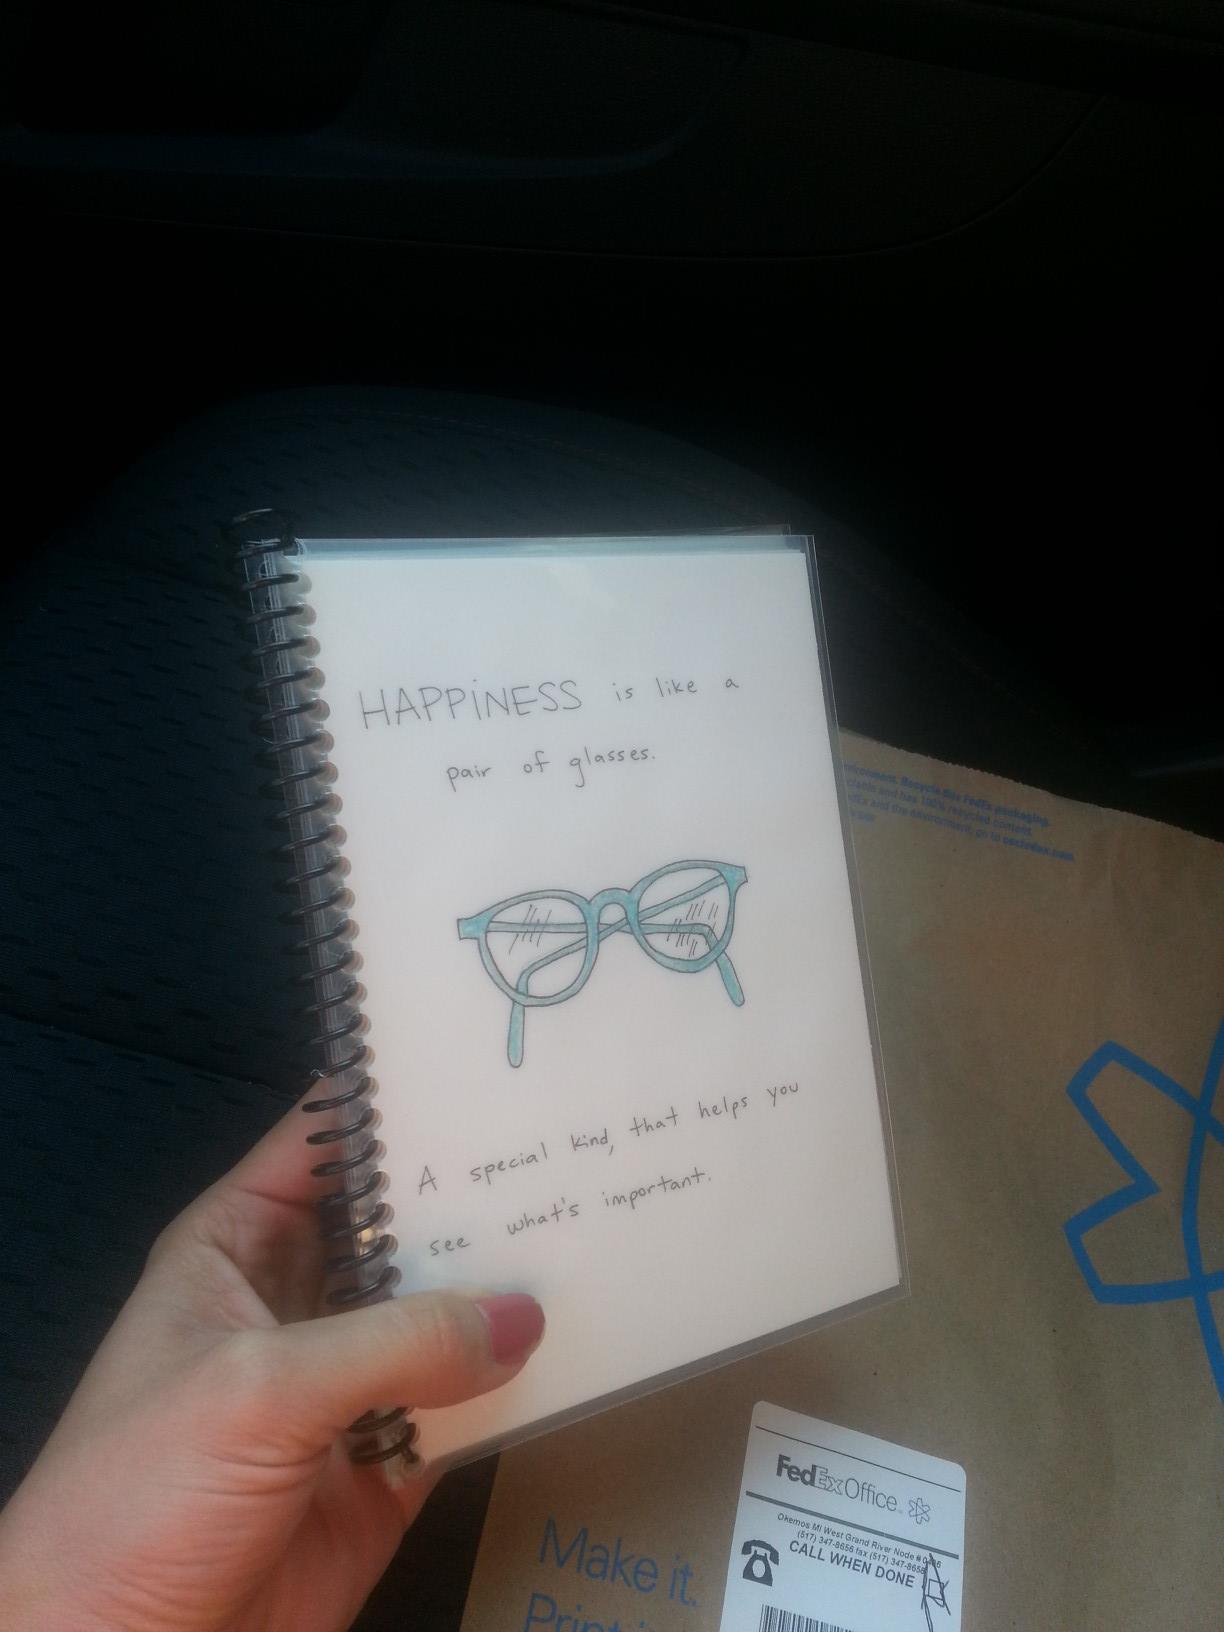 HAPPINESS is like a
pair of glasses.
A special kind, that helps you
see what's important.
environment. Recycle this FedEx packaging.
and has 100% recycled content.
and the environment, go to
FedEx Office
Okemos MI West Grand River Node #
(517) 347-8656 fax (517) 347-8658
CALL WHEN DONE
Make it.